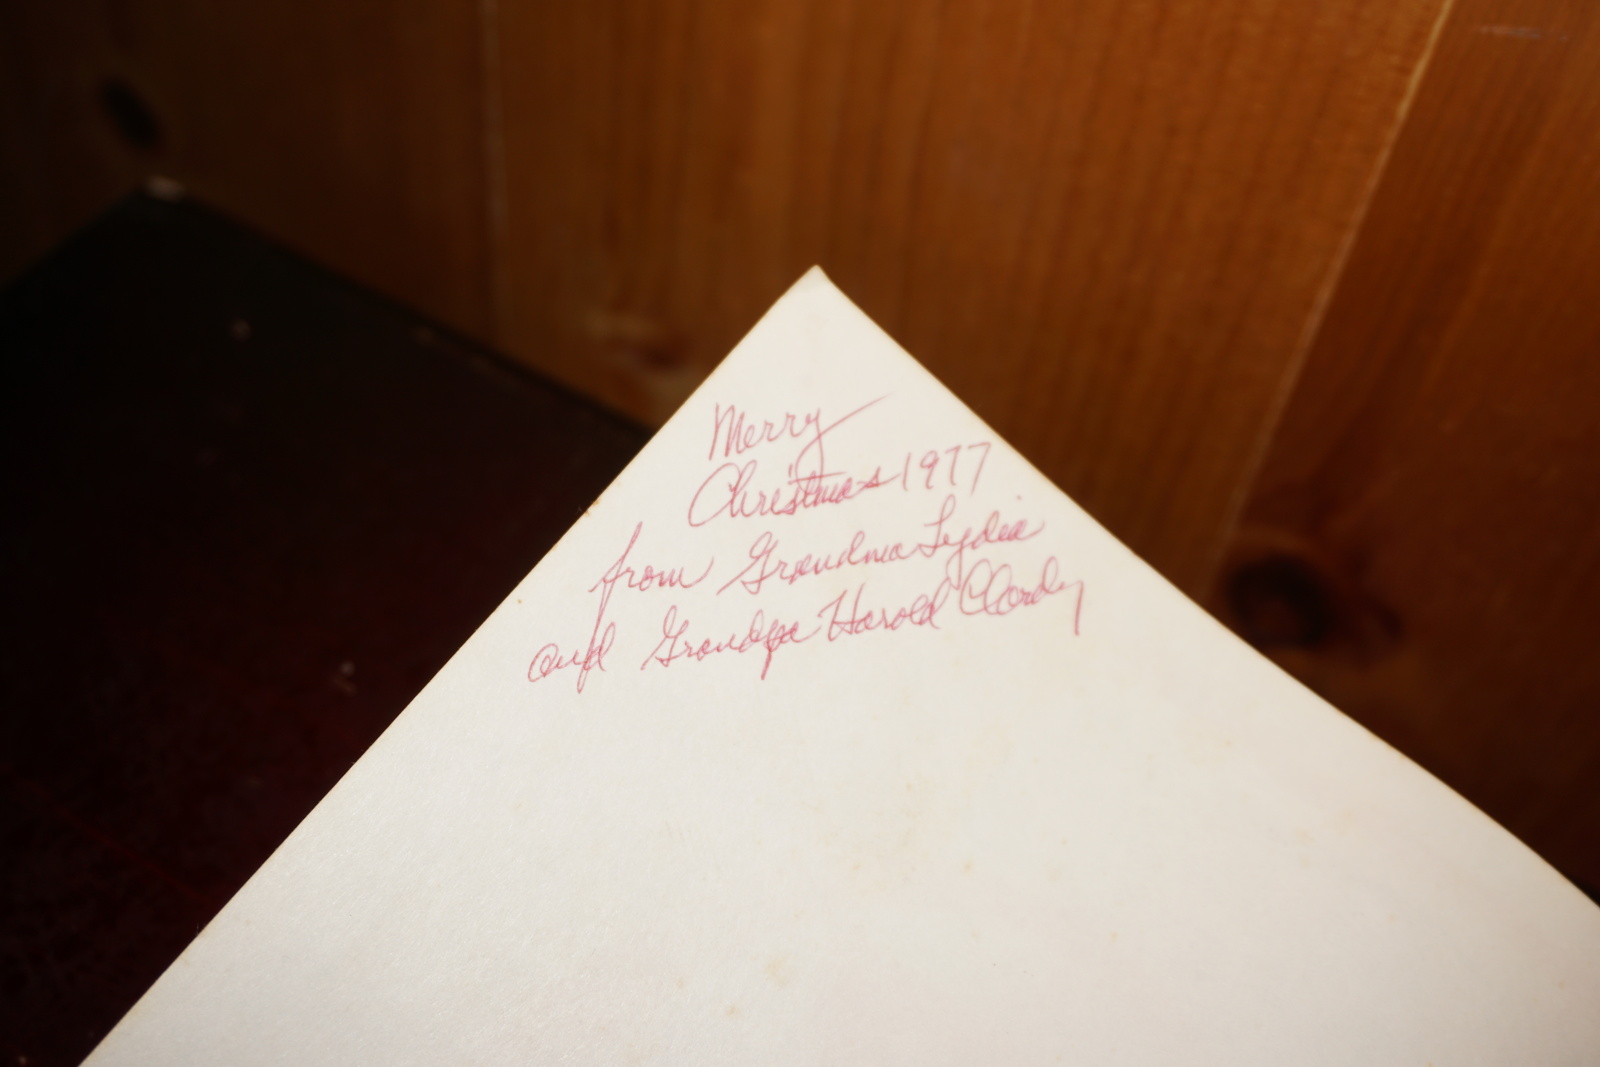 Merry
Christmas 1977
from Grandma Lydia
and Grandpa Harold Clardy